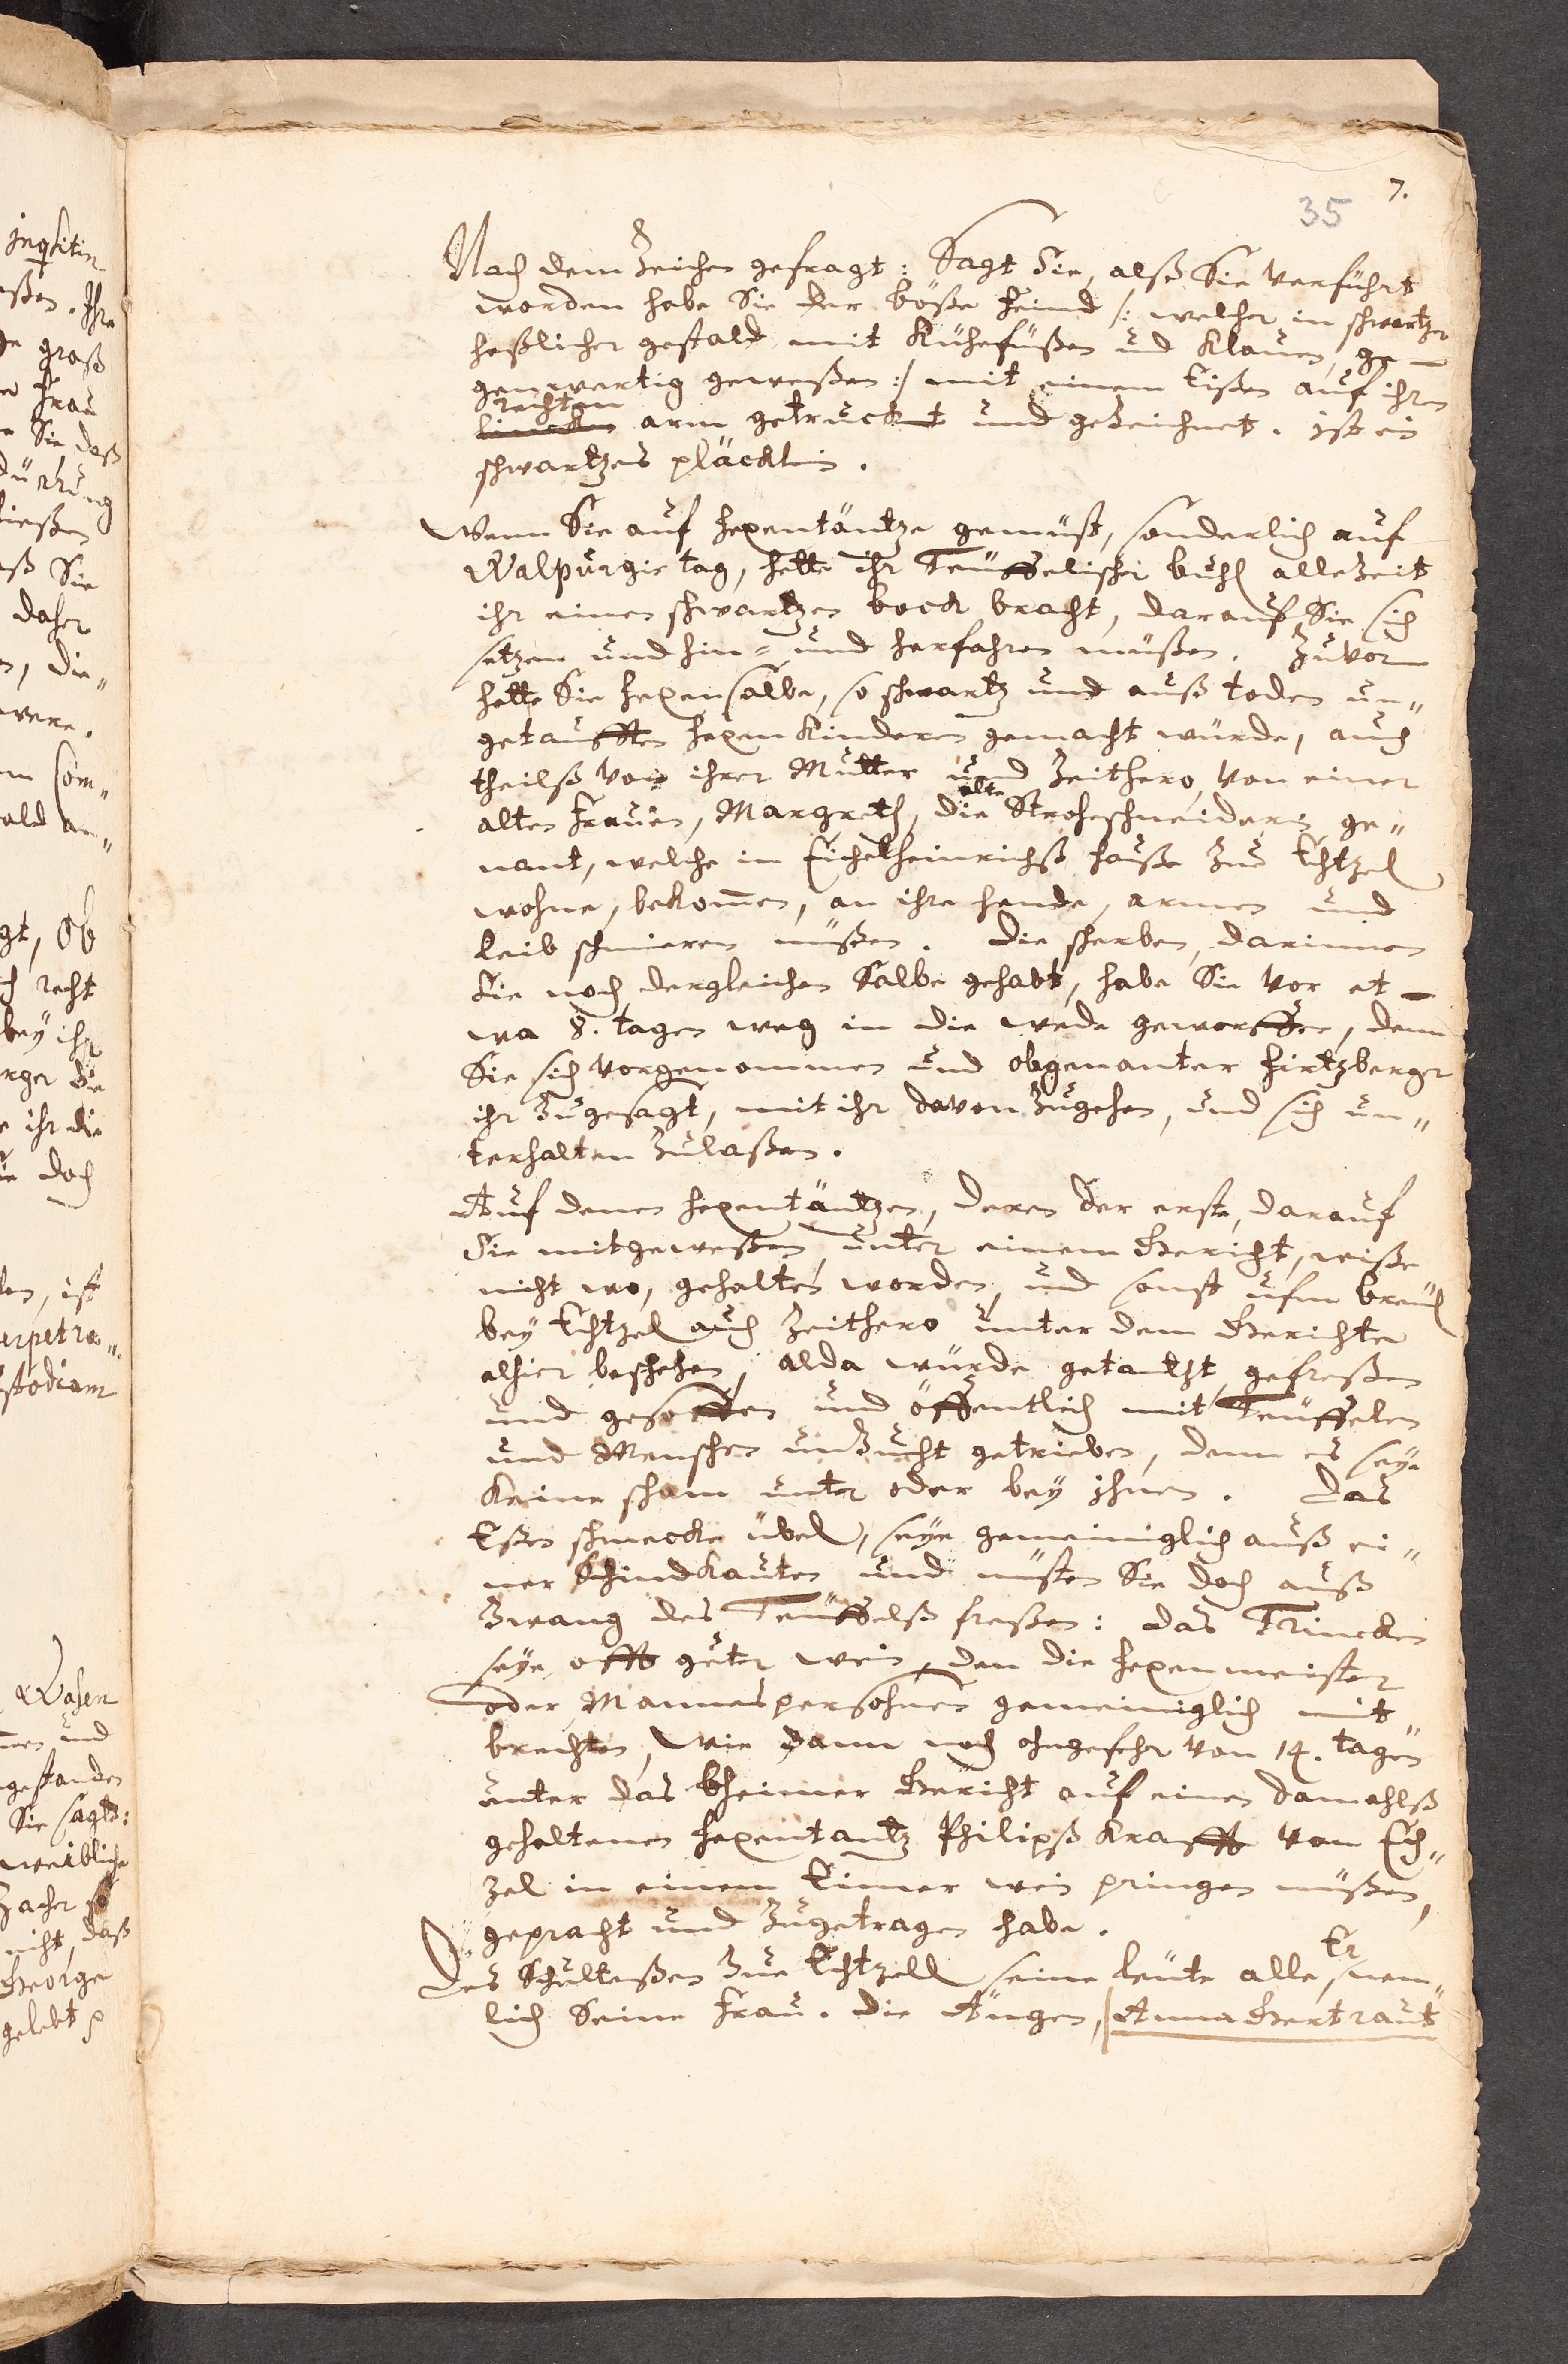 7.
35
Nach dem Zeichen gefragt: Sagt Sie, alß Sie verführt
worden habe Sie der böße Feind /: welcher in schwartzer
heßlicher gestald mit Kühefüßen und Klauen, ge-
genwertig geweßen :/ mit einem Eißen auf ihren
rechten
lincken arm getruckt und gezeichnet. ist ein
schwartzes pläcklin.
Wenn Sie auf hexentäntze gemüst, sonderlich auf
Walpurgis tag, hette ihr Teuffelischer buhl allezeit
ihr einen schwartzen bock bracht, darauf Sie sich
setzen und hin= und herfahren müßen. Zuvor
hette Sie hexensalbe, so schwartz und auß toden un„
getaufften hexen Kindern gemacht würde, auch
theilß von ihrer Mutter und Zeithero von einer
alte
alten Frauen, Margreth, die Strohschneiderin ge„
nant, welche in Eichelheinrichß hauße zu Echtzel
wohne, bekommen, an ihre hende, armen und
leib schmieren müßen. Die scherben, darinnen
Sie noch dergleichen Salbe gehabt, habe Sie vor et-
wa 8. tagen weg in die wede geworffen, denn
Sie sich vorgenommen und obgenanter Hirtzberger
ihr Zugesagt, mit ihr davon Zugehen, und sich un„
terhalten Zulaßen.
Auf denen hexentäntzen, deren der erste, darauf
Sie mitgeweßen, unter einem Gericht, wiße
nicht wo, gehalten worden, und sonst ufm breul
bey Echtzel auch Zeithero unter dem Gerichte
alhier beschehen, alda würde getantzt, gefreßen
und gesoffen und öffentlich mit Teuffelen
und Menschen unzucht getrieben, denn es seye
Keine scham unter oder bey ihnen. Das
Eßen schmecke übel, seye gemeiniglich auß ei„
ner Schindkauten und müsten Sie doch auß
Zwang des Teuffelß freßen: das Trincken
seye offt guter wein, den die hexenmeister
oder Mannespersohnen gemeiniglich mit
brechten, wie dann noch ohngefehr von 14. tagen
unter das bheimer Gericht auf einen damahlß
gehaltenen hexentantz Philipß Krafft von Ech„
zel in einem Eimer wein pringen müßen,
gepracht und Zugetragen habe.
Er
Des Schulteßen Zue Echtzell seine leute alle, nem„
lich Seine Frau. die Ängen, Anna Gertraut